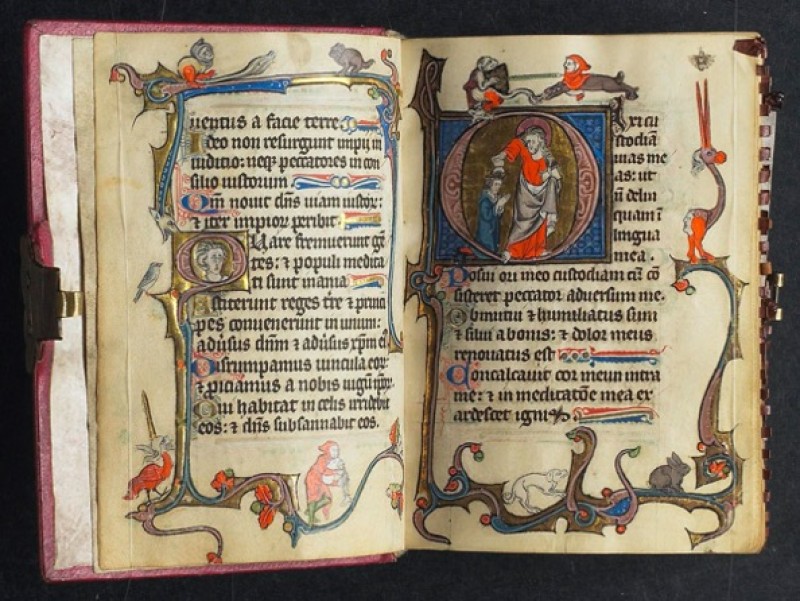 uentus a facie terre
Ideo non resurgunt impij in
iuditio: neqȝ peccatores in con
silio iustorum.
Qm̄ nouit dn̄s uiam iustor̄:
⁊ iter impior̄ peribit
Quare fremuerunt gē
tes: ⁊ populi medita
ti sunt inania
Astiterunt reges tr̄e ⁊ princi
pes conuenerunt in unum:
aduersus dn̄m ⁊ aduersus xp̄m eiꝰ
Dirumpamus uincula eor̄
⁊ ꝓiciamus a nobis iugū ip̄or̄
Qui habitat in celis irridebit
eos: ⁊ dn̄s subsannabit eos.
Dixi cu
stodiā
uias me
as: ut
n̄ delin
quam ī
lingua
mea.
Posui ori meo custodiam cū cō
sisteret peccator aduersum me.
Obmutui ⁊ humiliatus sum
⁊ silui a bonis: ⁊ dolor meus
renouatus est
Concalcauit cor meum intra
me: ⁊ in meditatōe mea ex
ardescet ignis